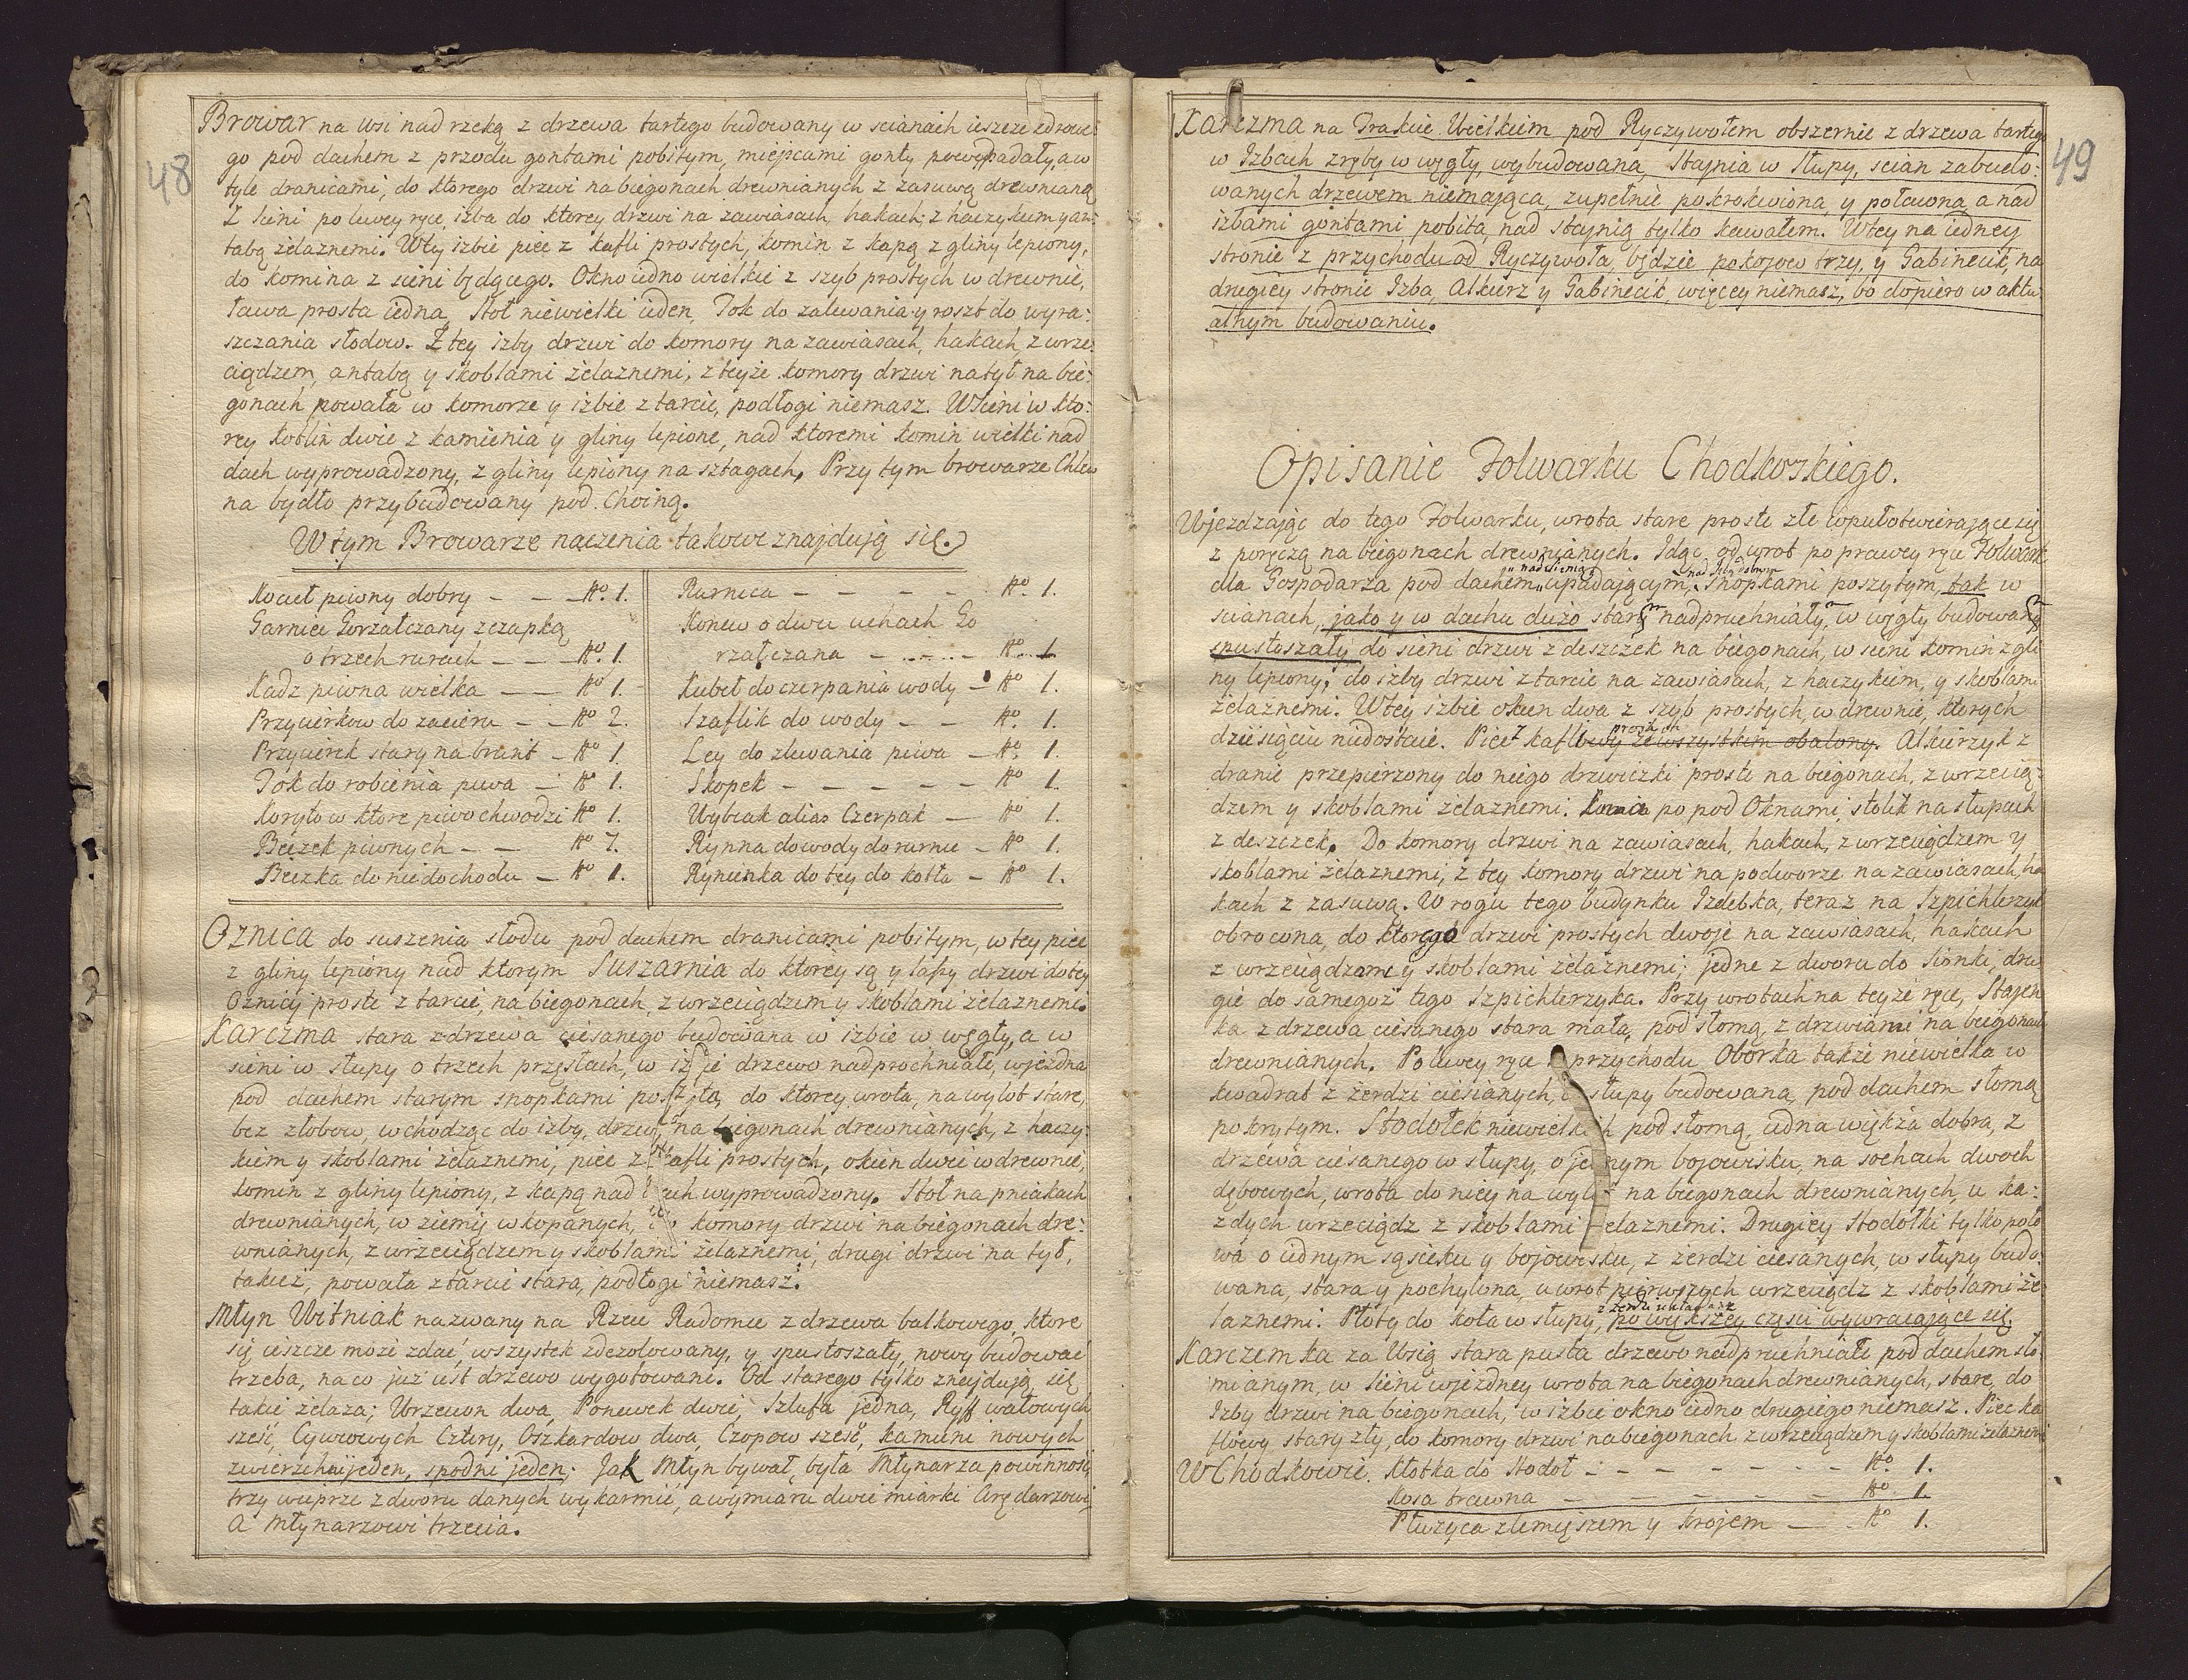 48
Browar na wsi nad rzeką z drzewa tartego budowany w scianach ieszcze zdrowe:
go pod dachem z przodu gontami pobitym, miejscami gonty powypadały, a w
tyle dranicami, do ktorego drzwi na biegonach drewnianych z zasuwą drewnianą
Z sieni po lewey ręce, izba do ktorey drzwi na zawiasach, hakach, z haczykiem y an:
tabą żelaznemi. W tey izbie piec z kafli prostych, komin z kapą z gliny lepiony,
do komina z sieni będącego. Okno iedno wielkie z szyb prostych w drewnie,
ława prosta iedna, Stoł niewielki ieden, Tok do zalewania y roszt do wyra:
szczania słodow. Z tey izby drzwi do komory na zawiasach, hakach, z wrze:
ciądzem, antabą y skoblami żelaznemi, z teyże komory drzwi na tył na bie:
gonach powała w komorze y izbie z tarcic, podłogi niemasz. W Sieni w kto:
rey kotlin dwie z kamienia y gliny lepione, nad ktoremi komin wielki nad
dach wyprowadzony, z gliny lepiony na sztagach, Przy tym browarze Chlew
na bydło przybudowany pod Choiną.
W tym Browarze naczenia takowe znajdują się.
Kocieł piwny dobry - - - No. 1.
Garniec Gorzałczany z czapką
o trzech rurach - - - No. 1.
Kadz piwna wielka - - No 1.
Przycierkow do zacieru - - No 2.
Przycierek stary na brant - No 1.
Tok do robienia piwa - No 1.
Koryto w ktore piwo chwodzi No 1.
Beczek piwnych - - No 7.
Beczka do niedochodu - No 1.
Rurnica - - - - - No. 1.
Konew o dwu uchach Go
rzałczana - - - - No 1
Kubeł do czerpania wody - No 1.
Szaflik do wody - - No. 1.
Ley do zlewania piwa - No 1.
Skopek - - - - - No 1.
Wybrak alias Czerpak - No 1.
Rynna do wody do rurnie - No 1.
Rynienka do tey do kotła - No 1.
Oznica do suszenia słodu pod dachem dranicami pobitym, w tey piec
z gliny lepiony nad ktorym Suszarnia do ktorey są y lassy drzwi do tey
Oznicy proste z tarcic, na biegonach, z wrzeciądzem y skoblami żelaznemi.
Karczma stara z drzewa ciesanego budowana w izbie w węgły, a w
sieni w słupy o trzech przęsłach, w iz ie drzewo nadprochniałe, wjezdna
pod dachem starym snopkami poszyta, do ktorey wrota, na wylot stare,
bez złobow, wchodząc do izby, drzwi na biegonach drewnianych, z haczy:
kiem y skoblami żelaznemi, piec z kafli prostych, okien dwie w drewnie,
komin z gliny lepiony, z kapą nad dach wyprowadzony. Stoł na pniakach
drewnianych, w ziemię wkopanych, do komory drzwi na biegonach dre:
wnianych, z wrzeciądzem y skoblami żelaznemi, drugi drzwi na tył,
takież, powała z tarcic stara, podłogi niemasz.
Młyn Witniak nazwany na Rzece Radomce z drzewa balkowego, ktore
się ieszcze może zdać, wszystek zdezolowany, y spustoszały, nowy budować
trzeba, na co już iest drzewo wygotowane. Od starego tylko znajdują się
takie żelaza; Wrzecion dwa, Panewek dwie, Szlufa jedna, Ryff wałowych
sześć, Cywrowych Cztery, Oszkardow dwa, Czopow sześć, kamieni nowych
zwierzchni jeden, spodni jeden; Jak Młyn bywał, była Młynarza powinność
trzy wieprze z dworu danych wykarmić, a wymiaru dwie miarki Aręndarzowi,
A Młynarzowi trzecia.
49
Karczma na Trakcie Wielkim pod Ryczywołem obszernie z drzewa tartego
w Izbach zręby w węgły, wybudowana, Stajnia w Słupy, scian zabudo:
wanych drzewem niemająca, zupełnie pokrokwiona, y połacona, a nad
izbami gontami pobita, nad stajnią tylko kawałem. W tey na iedney
stronie z przychodu od Ryczywoła, będzie pokojow trzy, y Gabinecik, na
drugiey stronie Izba, Alkierz y Gabinecik, więcey niemasz, bo dopiero w aktu
alnym budowaniu.
Opisanie Folwarku Chodkowskiego.
Wjezdzając do tego Folwarku, wrota stare proste złe wpułotwierające się
z poręczą na biegonach drewnianych. Idąc od wrot po prawey ręce Folwark
nad sienią nad izbą dobrym
dla Gospodarza pod dachem upadającym, snopkami poszytym, tak w
scianach, jako y w dachu dużo stary nadpruchniały, w węgły budowany
spustoszały do sieni drzwi z deszczek na biegonach, w sieni komin z gli
ny lepiony, do izby drzwi z tarcic na zawiasach, z haczykiem, y skoblami
żelaznemi. W tey izbie okien dwa z szyb prostych, w drewnie, ktorych
prostych
dziesięciu niedostaie. Piec z kaflowy ze wszystkim obalony. Alkierzyk z
dranic przepierzony do niego drzwiczki proste na biegonach, z wrzecią:
dzem y skoblami żelaznemi. po pod Oknami, stolik na słupach
z deszczek. Do komory drzwi na zawiasach, hakach, z wrzeciądzem y
skoblami żelaznemi, z tey komory drzwi na podworze na zawiasach, ha
kach z zasuwą. W rogu tego budynku Izdebka, teraz na Szpichlerzyk
obrocona, do ktorego drzwi prostych dwoje na zawiasach, hakach
z wrzeciądzami y skoblami żelaznemi; jedne z dworu do Sionki, dru
gie do samegoż tego Szpichlerzyka. Przy wrotach na teyże ręce, Stajen
ka z drzewa ciesanego stara mała, pod słomą, z drzwiami na biegonach
drewnianych. Po lewey ręce z przychodu Oborka także niewielka w
kwadrat z żerdzi ciesianych, w słupy budowana, pod dachem słomą
pokrytym. Stodołek niewielkich pod słomą, iedna większa dobra, z
drzewa ciesanego w słupy o jednym bojowisku, na sochach dwoch
dębowych, wrota do niey na wylot na biegonach drewnianych, u ka:
zdych wrzeciądz z skoblami żelaznemi. Drugiey Stodołki tylko poło
wa o iednym sąsieku y bojowisku, z żerdzi ciesanych, w słupy budo:
wana, stara y pochylona, u wrot pierwszych wrzeciądz z skoblami że
z żerdzi układane
laznemi. Płoty do koła w słupy, po większey części wywracające się.
Karczemka za Wsią stara pusta drzewo nadpruchniałe pod dachem sło
mianym, w Sieni wjezdney wrota na biegonach drewnianych, stare, do
Izby drzwi na biegonach, w izbie okno iedno drugiego niemasz. Piec ka
flowy stary zły, do komory drzwi na biegonach z wrzeciądzem y skoblami żelaznemi
W Chodkowie. Kłotka do Stodoł - - - - - - No. 1.
Kosa trawna - - - - - No. 1.
Płużyca z lemięszem y krojem - - No 1.